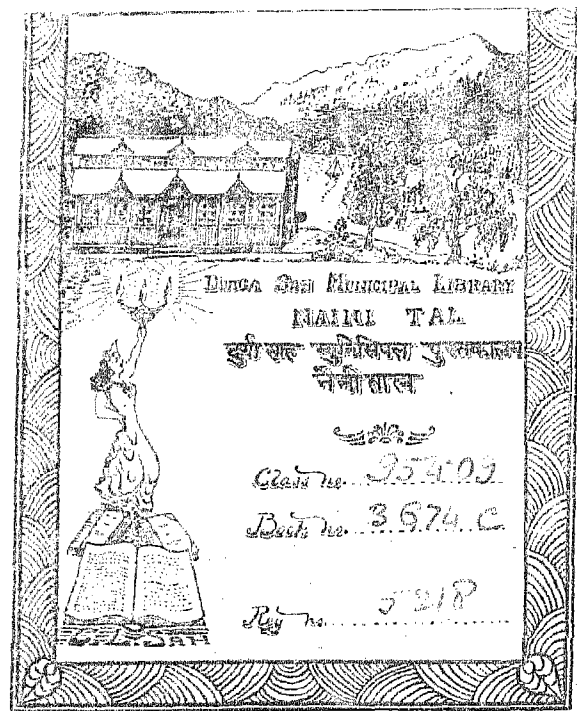 DURGA SAH MUNICIPAL LIBRARY
NAINI TAL
दुर्गा साह म्युनिसिपल पुस्तकालय
नैनीताल
Class no. 954.09
Book no. B674 C
Reg no. 5218